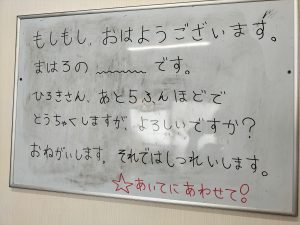 もしもし、おはようございます。
まはろの 〰〰〰 です。
ひろきさん、あと5ふんほどで
とうちゃくしますが、よろしいですか？
おねがいします。それではしつれいします。
☆あいてにあわせて!